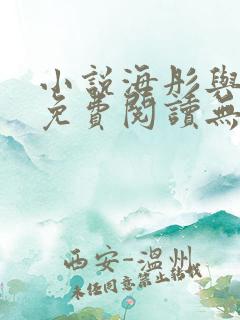 小說海彤與
免費閱讀無
西安-温州
未经同意禁止转载